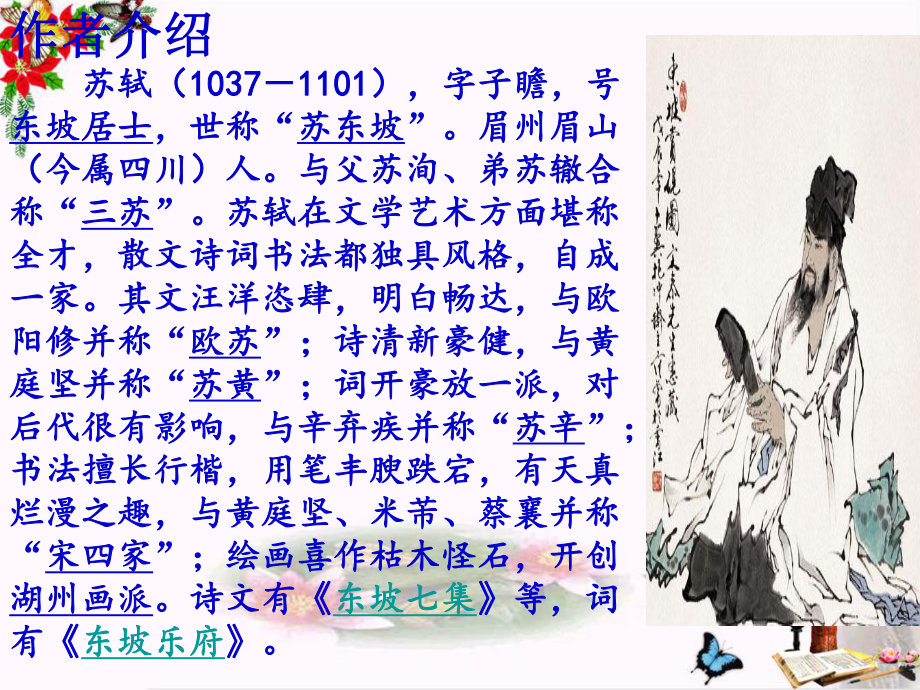 作者介绍
苏轼（1037－1101），字子瞻，号
东坡居士，世称“苏东坡”。眉州眉山
（今属四川）人。与父苏洵、弟苏辙合
称“三苏”。苏轼在文学艺术方面堪称
全才，散文诗词书法都独具风格，自成
一家。其文汪洋恣肆，明白畅达，与欧
阳修并称“欧苏”；诗清新豪健，与黄
庭坚并称“苏黄”；词开豪放一派，对
后代很有影响，与辛弃疾并称“苏辛”；
书法擅长行楷，用笔丰腴跌宕，有天真
烂漫之趣，与黄庭坚、米芾、蔡襄并称
“宋四家”；绘画喜作枯木怪石，开创
湖州画派。诗文有《东坡七集》等，词
有《东坡乐府》。